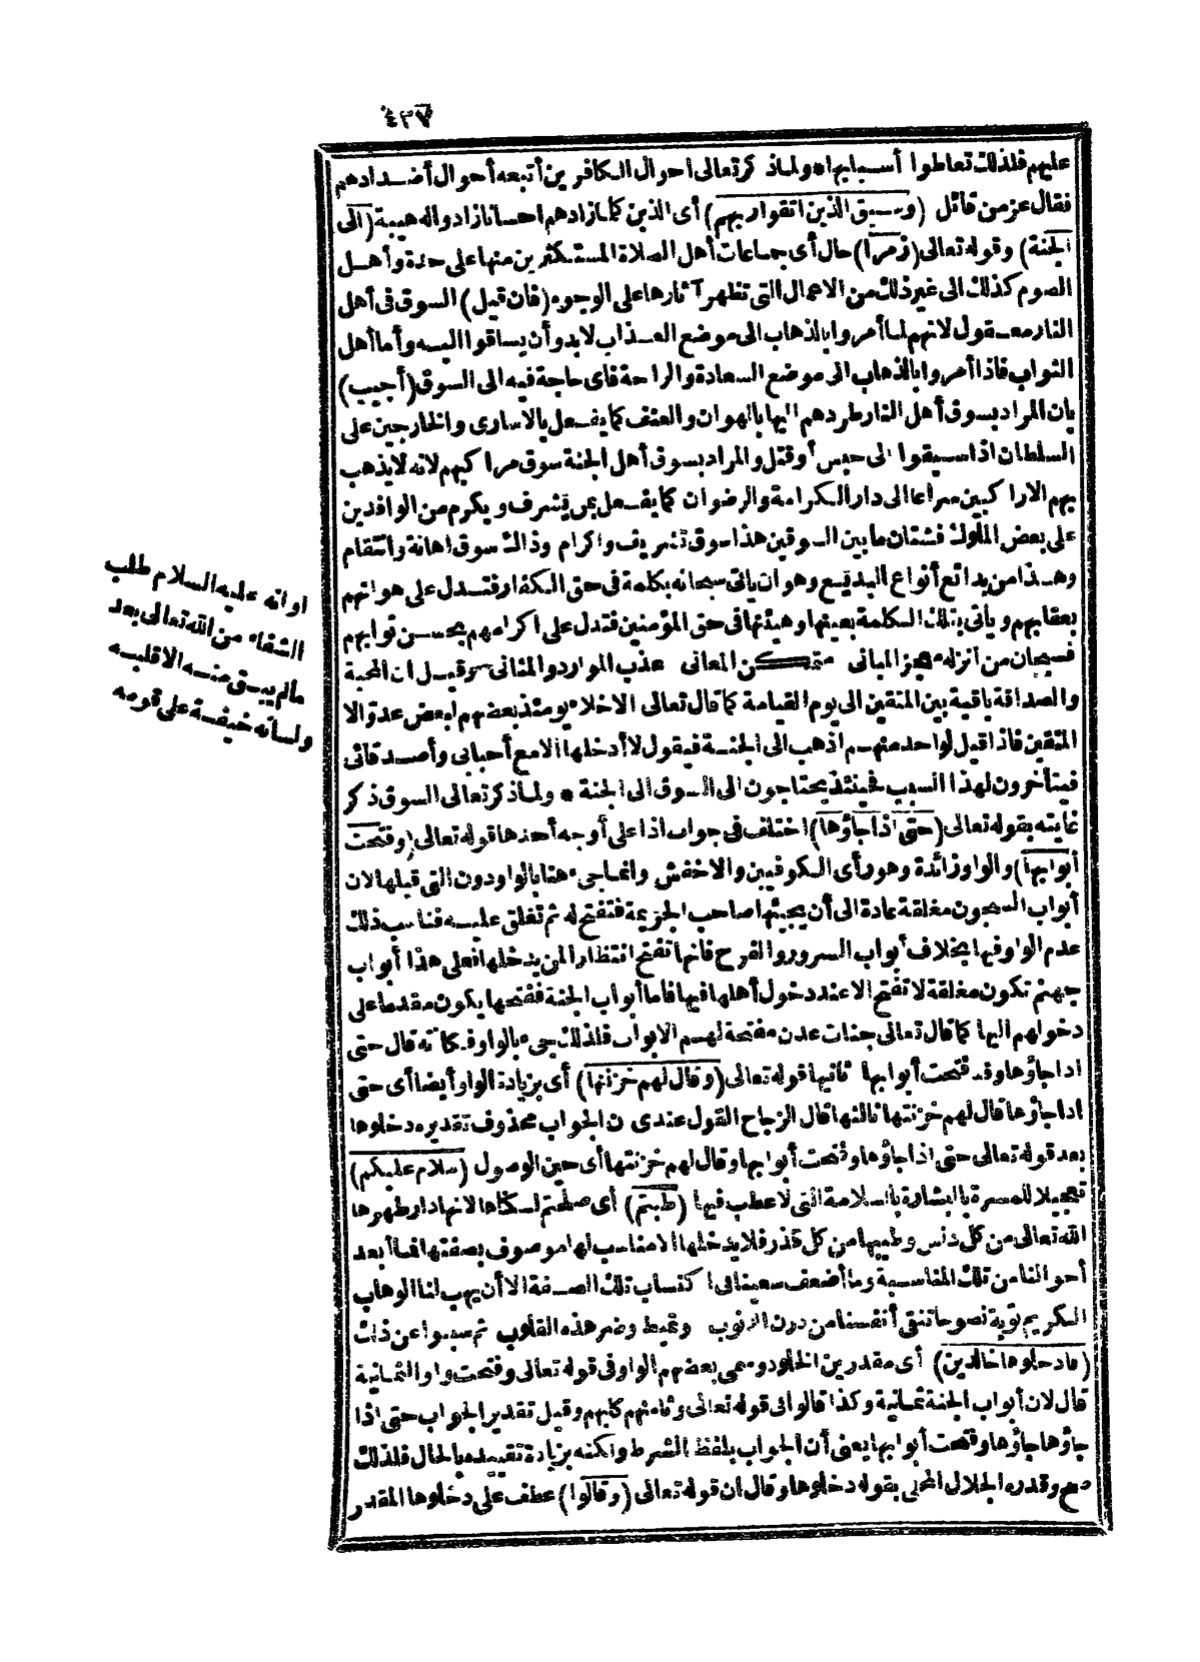 ٤٣٧
عليهم فلذلك تعاطوا أسبابها * ولما ذكر تعالى احوال الكافرين أتبعه أحوال أضدادهم
فقال عز من قائل (وسيق الذين اتقوا ربهم) أى الذين كلما زادهم احسانا زادوا له هيبة (الى
الجنة) وقوله تعالى (زمرا) حال أى جماعات أهل الصلاة المستكثرين منها على حدة وأهل
الصوم كذلك الى غير ذلك من الاعمال التى تظهر آثارها على الوجوه (فان قيل) السوق فى أهل
النار معقول لانهم لما أمروا بالذهاب الى موضع العذاب لا بد وأن يساقوا اليه وأما أهل
الثواب فاذا أمروا بالذهاب الى موضع السعادة والراحة فاى حاجة فيه الى السوق (أجيب)
بان المراد بسوق أهل النار طردهم اليها بالهوان والعنف كما يفعل بالاسارى والخارجين على
السلطان اذا سيقوا الى حبس أو قتل والمراد بسوق أهل الجنة سوق مراكبهم لانه لا يذهب
بهم الا راكبين سراعا الى دار الكرامة والرضوان كما يفعل بمن يشرف ويكرم من الوافدين
على بعض الملوك فشتان ما بين السوقين هذا سوق تشريف واكرام وذاك سوق اهانة وانتقام
وهذا من بدائع أنواع البديع وهو ان يأتى سبحانه بكلمة فى حق الكفار فتدل على هوانهم
بعقابهم ويأتى بتلك الكلمة بعينها وهيئتها فى حق المؤمنين فتدل على اكرامهم بحسن ثوابهم
فسبحان من أنزله معجز المبانى متمكن المعانى عذب الموارد والمثانى وقيل ان المحبة
والصداقة باقية بين المتقين الى يوم القيامة كما قال تعالى الاخلاء يومئذ بعضهم لبعض عدو الا
المتقين فاذا قيل لواحد منهم اذهب الى الجنة فيقول لا أدخلها الا مع أحبابى وأصدقائى
فيتأخرون لهذا السبب فحينئذ يحتاجون الى السوق الى الجنة * ولما ذكر تعالى السوق ذكر
غايته بقوله تعالى (حتى اذا جاؤها) اختلف فى جواب اذا على أوجه أحدها قوله تعالى (وفتحت
أبوابها) والواو زائدة وهو رأى الكوفيين والاخفش وانما جىء هنا بالواو دون التى قبلها لان
أبواب السجون مغلقة عادة الى أن يجيئها صاحب الجريمة فتفتح له ثم تغلق عليه فناسب ذلك
عدم الواو فيها بخلاف أبواب السرور والفرح فانها تفتح انتظارا لمن يدخلها فعلى هذا أبواب
جهنم تكون مغلقة لا تفتح الا عند دخول أهلها فيها فاما أبواب الجنة ففتحها يكون مقدما على
دخولهم اليها كما قال تعالى جنات عدن مفتحة لهم الابواب فلذلك جىء بالواو فكأنه قال حتى
اذا جاؤها وقد فتحت أبوابها ثانيها قوله تعالى (وقال لهم خزنتها) أى بزيادة الواو أيضا أى حتى
اذا جاؤها قال لهم خزنتها ثالثها قال الزجاج القول عندى ان الجواب محذوف تقديره دخلوها
بعد قوله تعالى حتى اذا جاؤها وفتحت أبوابها وقال لهم خزنتها أى حين الوصول (سلام عليكم)
تعجيلا للمسرة بالبشارة بالسلامة التى لا عطب فيها (طبتم) أى صلحتم لسكناها لانها دار طهرها
الله تعالى من كل دنس وطيبها من كل قذر فلا يدخلها الا مناسب لها موصوف بصفتها فما أبعد
أحوالنا من تلك المناسبة وما أضعف سعينا فى اكتساب تلك الصفة الا أن يهب لنا الوهاب
الكريم توبة نصوحا تنقى أنفسنا من درن الذنوب وتميط وضر هذه القلوب ثم سببوا عن ذلك
(فادخلوها خالدين) أى مقدرين الخلود وسمى بعضهم الواو فى قوله تعالى وفتحت واو الثمانية
قال لان أبواب الجنة ثمانية وكذا قالوا فى قوله تعالى وثامنهم كلبهم وقيل تقدير الجواب حتى اذا
جاؤها جاؤها وفتحت أبوابها يعنى أن الجواب بلفظ الشرط ولكنه بزيادة تقييده بالحال فلذلك
صح وقدره الجلال المحلى بقوله دخلوها وقال ان قوله تعالى (وقالوا) عطف على دخلوها المقدر
او انه عليه السلام طلب
الشفاء من الله تعالى بعد
ما لم يبق منه الا قلبه
ولسانه خيفة على قومه